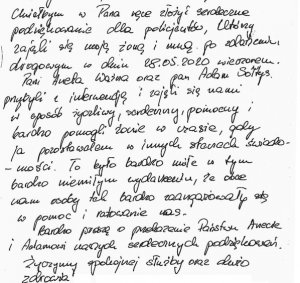 Chciałbym w Pana ręce złożyć serdeczne
podziękowanie dla policjantów, którzy
zajęli się moją żoną i mną po zdarzeniu
drogowym w dniu 08.05.2020 wieczorem.
Pani Aneta Ważna oraz pan Adam Sołtys
przybyli z interwencją i zajęli się nami
w sposób życzliwy, serdeczny, pomocny i
bardzo pomogli żonie w czasie, gdy
ja pozostawałem w innych stanach świado-
-mości. To było bardzo miłe w tym
bardzo niemiłym wydarzeniu, że obce
nam osoby tak bardzo zaangażowały się
w pomoc i ratowanie nas.
Bardzo proszę o przekazanie Państwu Anecie
i Adamowi naszych serdecznych podziękowań.
Życzymy spokojnej służby oraz dużo
zdrowia!